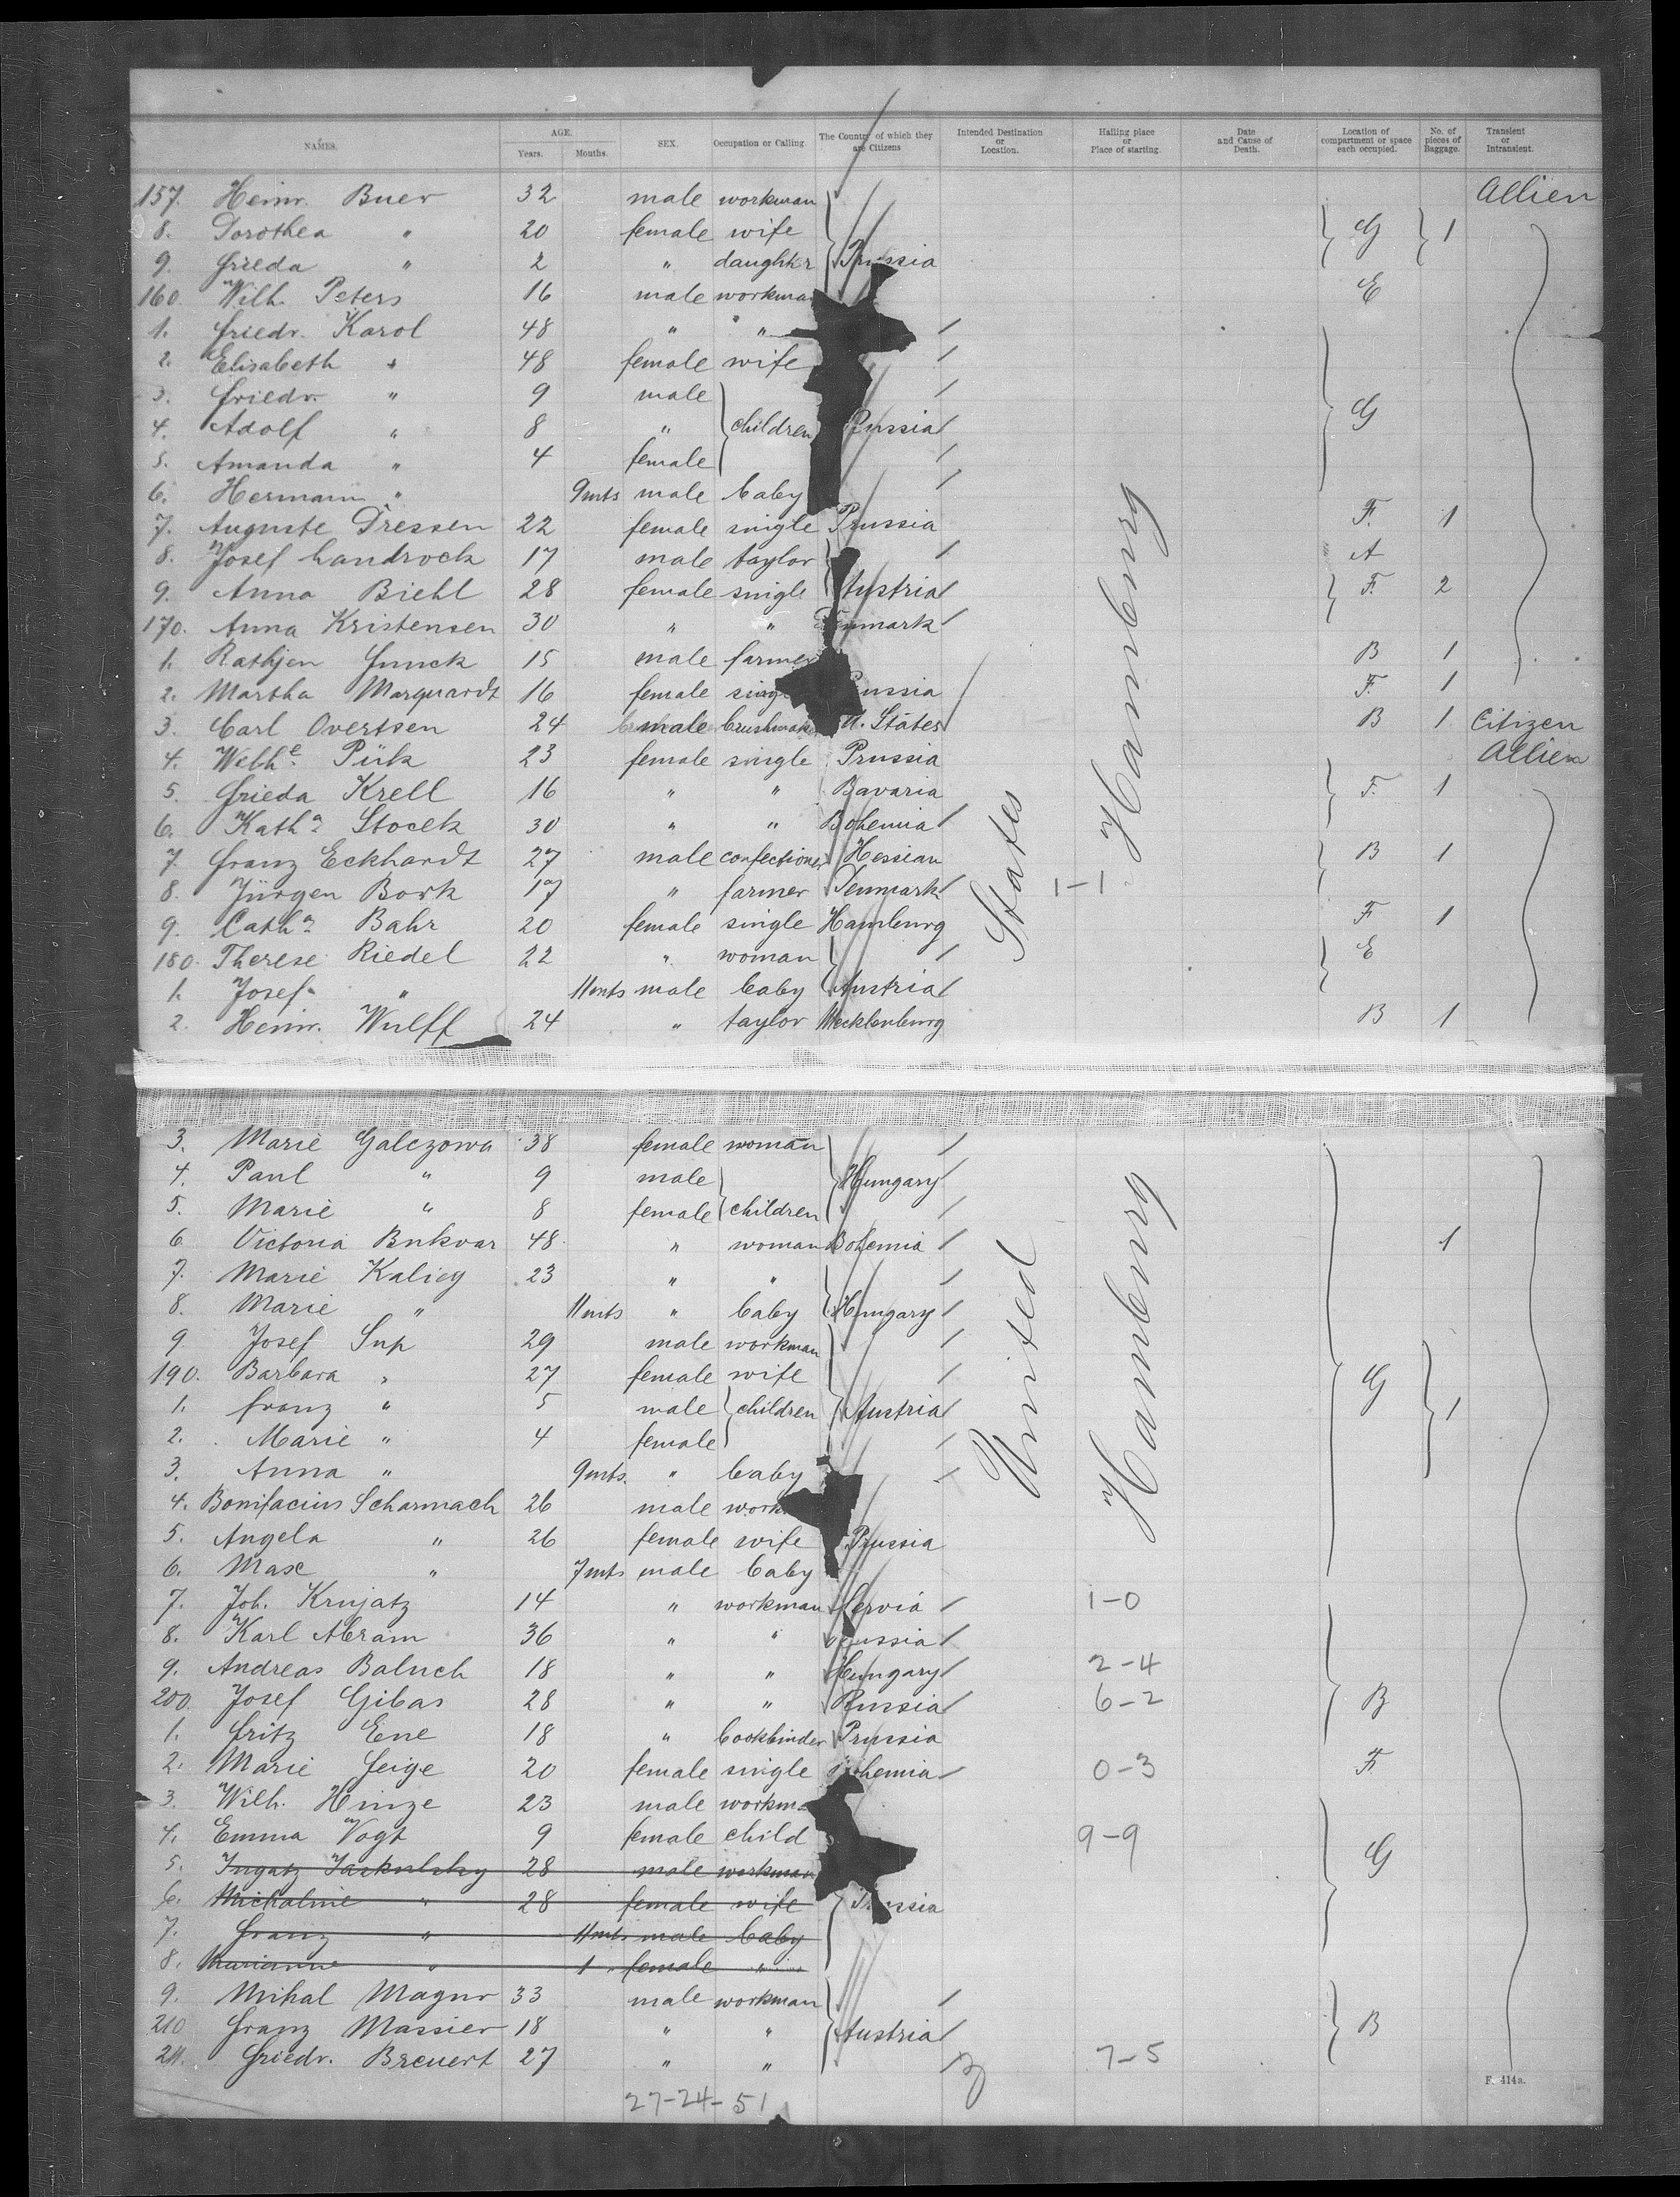 NAMES. AGE. Years. Months. SEX. Occupation or Calling. The Country of which they are Citizens Intended Destination or Location. Hailing place or Place of starting. Date and Cause of Death. Location of compartment or space each occupied. No. of pieces of Baggage. Transient or Intransient.
157. Heinr. Buer 32 male workman Allien
8. Dorothea " 20 female wife G 1
9. Frieda " 2 " daughter Prussia
160. Wilh. Peters 16 male workman E
1. Friedr. Karol 48 " "
2. Elisabeth " 48 female wife
3. Friedr. " 9 male
4. Adolf " 8 " children Russia G
5. Amanda " 4 female
6. Hermann " 9mts male baby
7. Auguste Dressen 22 female single Prussia F. 1
8. Josef Landrock 17 male taylor A
9. Anna Biehl 28 female single Austria F. 2
170. Anna Kristensen 30 " " Denmark
1. Rathjen Junck 15 male farmer B 1
2. Martha Marquardt 16 female single ussia F. 1
3. Carl Overtsen 24 male brushmaker U. States B 1 Citizen
4. Wilhe Pük 23 female single Prussia Allien
5. Frieda Krell 16 " " Bavaria F. 1
6. Katha Stocek 30 " " Bohemia
7. Franz Eckhardt 27 male confectioner Hessian B 1
8. Jürgen Bork 17 " farmer Denmark 1-1
9. Catha Bahr 20 female single Hamburg F 1
180. Therese Riedel 22 " woman E
1. Josef " 11mts male baby Austria
2. Heinr. Wulff 24 " taylor Mecklenburg B 1
States
Hamburg
3. Marie Galczowa 38 female woman
4. Paul " 9 male Hungary
5. Marie " 8 female children
6. Victoria Bukvar 48 " woman Bohemia 1
7. Marie Kalicy 23 " "
8. Marie " 11mts " baby Hungary
9. Josef Sup 29 male workman
190. Barbara " 27 female wife G
1. Franz " 5 male children Austria 1
2. Marie " 4 female
3. Anna " 9mts. " baby
4. Bonifacius Scharmach 26 male work
5. Angela " 26 female wife Prussia
6. Max " 7mts male baby
7. Joh. Krujatz 14 " workman Servia 1-0
8. Karl Abram 36 " " ussia
9. Andreas Baluch 18 " " Hungary 2-4
200. Josef Gibas 28 " " Russia 6-2 B
1. Fritz Ene 18 " bookbinder Prussia
2. Marie Feige 20 female single Bohemia 0-3 F
3. Wilh. Hinze 23 male workma
4. Emma Vogt 9 female child 9-9
5. Ingatz Jaskulsky 28 male workman G
6. Michaline " 28 female wife ssia
7. Franz " 11mts male baby
8. Marianne " 1 " female "
9. Mihal Magur 33 male workman
210 Franz Massier 18 " " Austria B
211. Friedr. Breuert 27 " " 7-5
United
Hamburg
F. 414a.
27-24-51